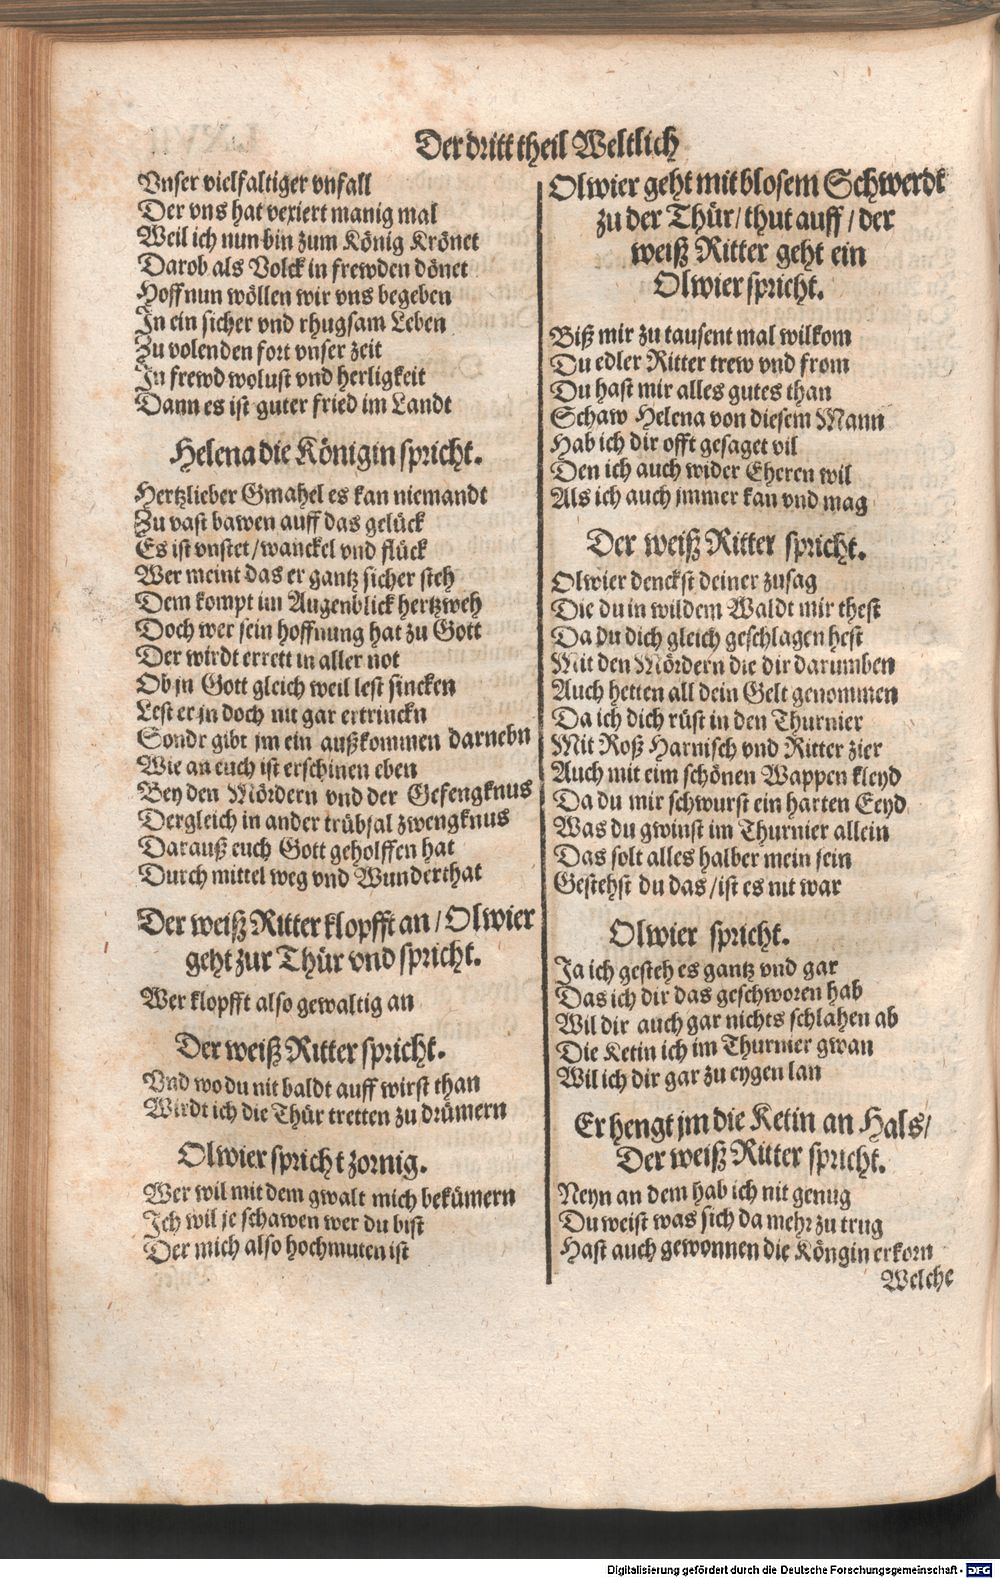 Der dritt theil Weltlich
Vnser vielfaltiger vnfall
Der vns hat vexiert manig mal
Weil ich nun bin zum König Krönet
Darob als Volck in frewden dönet
Hoff nun wöllen wir vns begeben
In ein sicher vnd rhugsam Leben
Zu volenden fort vnser zeit
In frewd wolust vnd herligkeit
Dann es ist guter fried im Landt
Helena die Königin spricht.
Hertzlieber Gmahel es kan niemandt
Zu vast bawen auff das gelück
Es ist vnstet / wanckel vnd flück
Wer meint das er gantz sicher steh
Dem kompt im Augenblick hertzweh
Doch wer sein hoffnung hat zu Gott
Der wirdt errett in aller not
Ob jn Gott gleich weil lest sincken
Lest er jn doch nit gar ertrinckn
Sondr gibt jm ein außkommen darnebn
Wie an euch ist erschinen eben
Bey den Mördern vnd der Gefengknus
Dergleich in ander trübsal zwengknus
Darauß euch Gott geholffen hat
Durch mittel weg vnd Wunderthat
Der weiß Ritter klopfft an / Olwier
geht zur Thür vnd spricht.
Wer klopfft also gewaltig an
Der weiß Ritter spricht.
Vnd wo du nit baldt auff wirst than
Wirdt ich die Thür tretten zu drümern
Olwier spricht zornig.
Wer wil mit dem gwalt mich bekümern
Ich wil je schawen wer du bist
Der mich also hochmuten ist
Olwier geht mit blosem Schwerdt
zu der Thür / thut auff / der
weiß Ritter geht ein
Olwier spricht.
Biß mir zu tausent mal wilkom
Du edler Ritter trew vnd from
Du hast mir alles gutes than
Schaw Helena von diesem Mann
Hab ich dir offt gesaget vil
Den ich auch wider Eheren wil
Als ich auch jmmer kan vnd mag
Der weiß Ritter spricht.
Olwier denckst deiner zusag
Die du in wildem Waldt mir thest
Da du dich gleich geschlagen hest
Mit den Mördern die dir darumben
Auch hetten all dein Gelt genommen
Da ich dich rüst in den Thurnier
Mit Roß Harnisch vnd Ritter zier
Auch mit eim schönen Wappen kleyd
Da du mir schwurst ein harten Eeyd
Was du gwinst im Thurnier allein
Das solt alles halber mein sein
Gestehst du das / ist es nit war
Olwier spricht.
Ja ich gesteh es gantz vnd gar
Das ich dir das geschworen hab
Wil dir auch gar nichts schlahen ab
Die Ketin ich im Thurnier gwan
Wil ich dir gar zu eygen lan
Er hengt jm die Ketin an Hals /
Der weiß Ritter spricht.
Neyn an dem hab ich nit genug
Du weist was sich da mehr zu trug
Hast auch gewonnen die Köngin erkorn
Welche
Digitalisierung gefördert durch die Deutsche Forschungsgemeinschaft - DFG